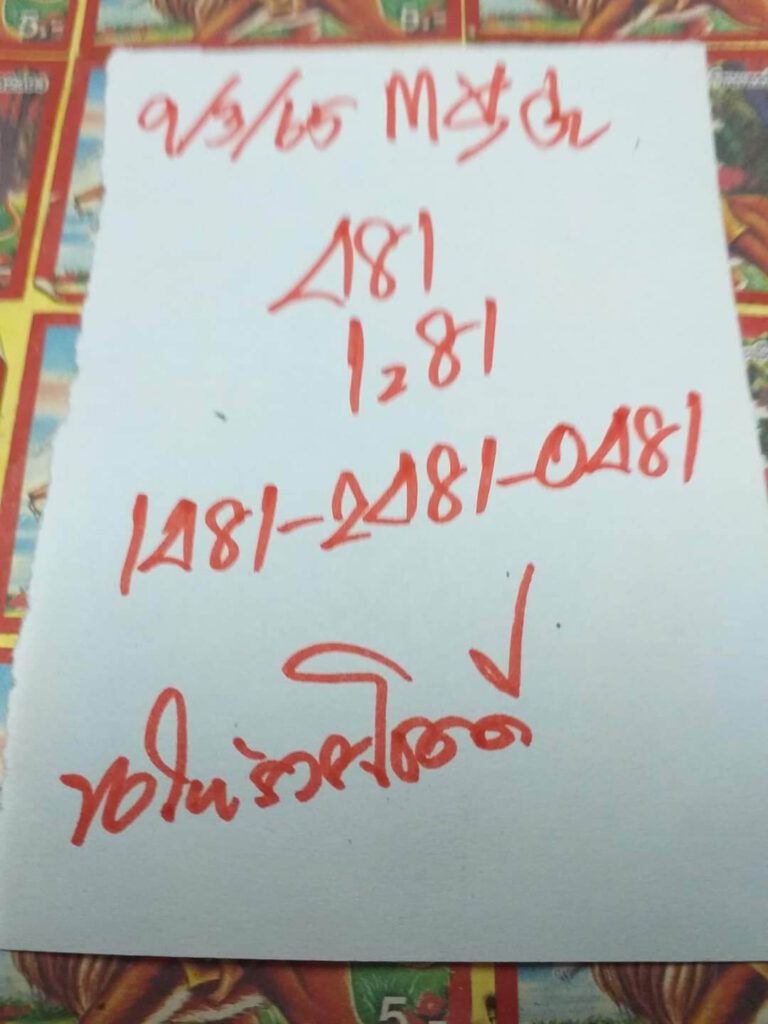 9/3/65 M
481
1281
1481-2481-0481
ขอให้รวยโชคดี
5